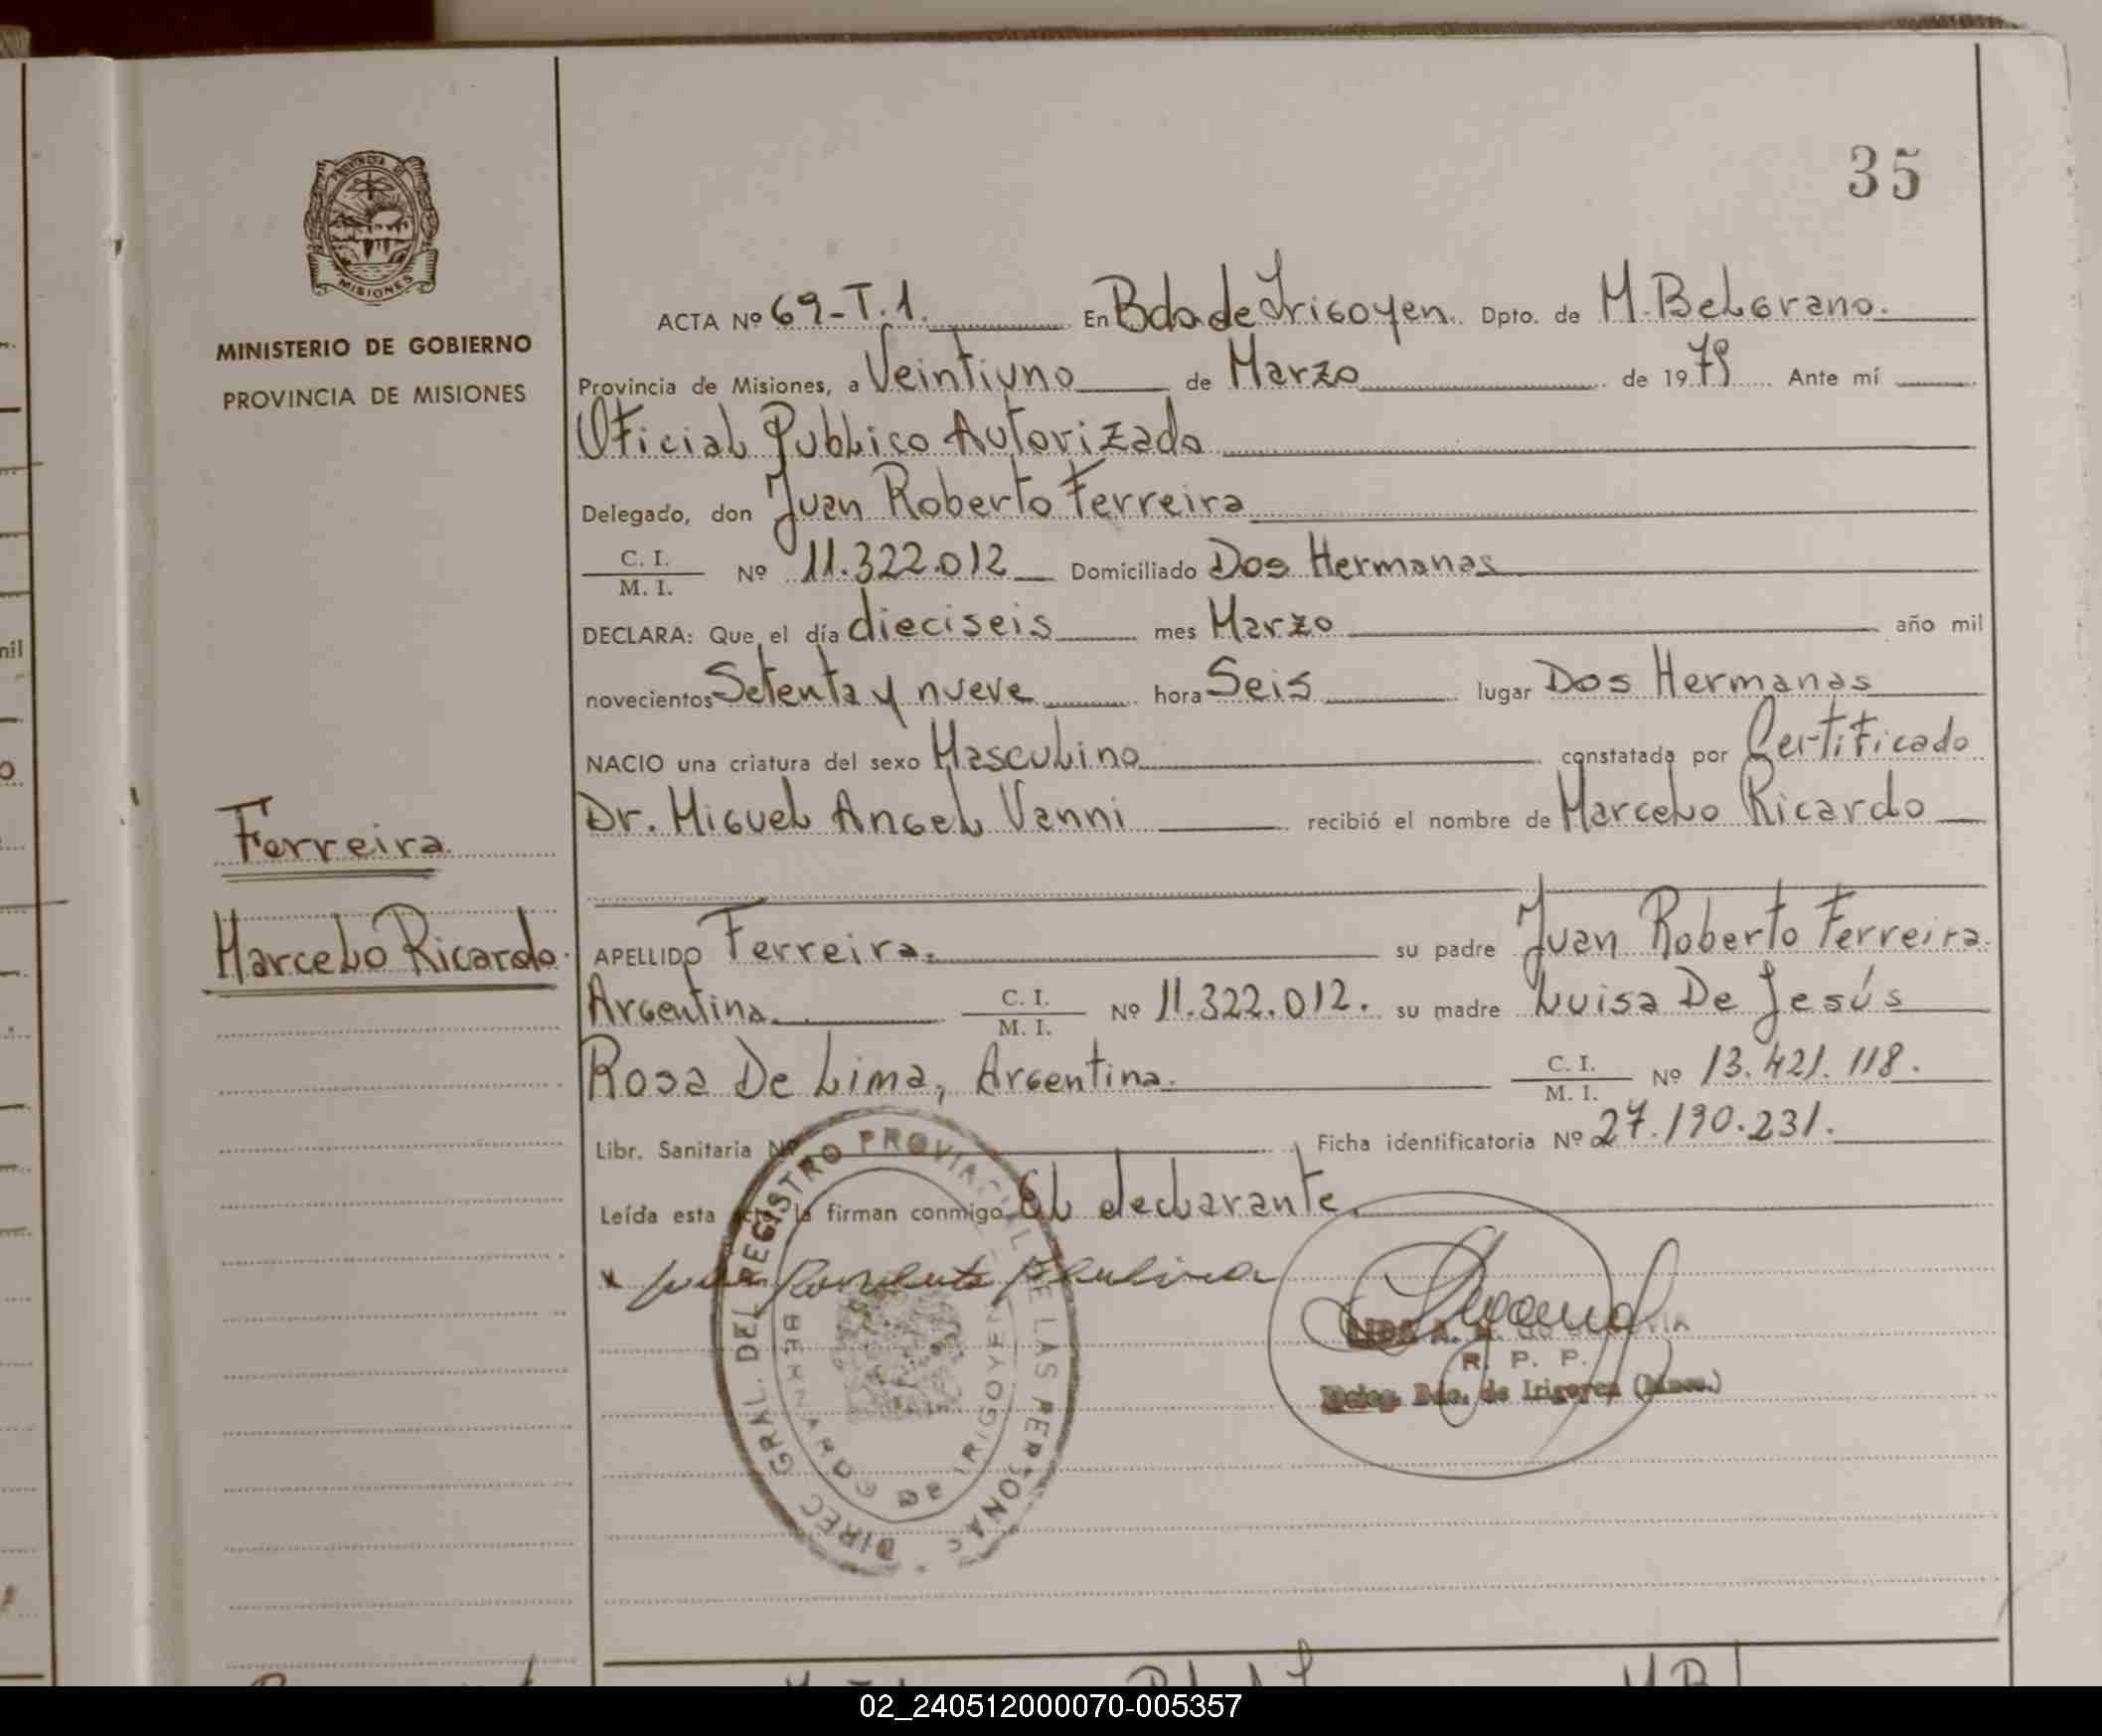 35
PROVINCIA DE
MISIONES
MINISTERIO DE GOBIERNO
PROVINCIA DE MISIONES
Ferreira
Marcelo Ricardo.
ACTA Nº 69-T.1. En Bdo de Irigoyen Dpto. de M. Belgrano.
Provincia de Misiones, a Veintiuno de Marzo de 1979 Ante mí
Oficial Publico Autorizado
Delegado, don Juan Roberto Ferreira
C. I. / M. I. Nº 11.322.012 Domiciliado Dos Hermanas
DECLARA: Que el día dieciseis mes Marzo año mil
novecientos Setenta y nueve hora Seis lugar Dos Hermanas
NACIO una criatura del sexo Masculino constatada por Certificado
Dr. Miguel Angel Vanni recibió el nombre de Marcelo Ricardo
APELLIDO Ferreira. su padre Juan Roberto Ferreira.
Argentina C. I. / M. I. Nº 11.322.012. su madre Luisa De Jesús
Rosa De Lima, Argentina. C. I. / M. I. Nº 13.421.118.
Libr. Sanitaria Nº Ficha identificatoria Nº 27.190.231.
Leída esta acta, la firman conmigo El declarante.
DIREC GRAL. DEL REGISTRO PROVINCIAL DE LAS PERSONAS
BERNARDO DE IRIGOYEN
R. P. P.
Deleg. Bdo. de Irigoyen (Mnes.)
02_240512000070-005357